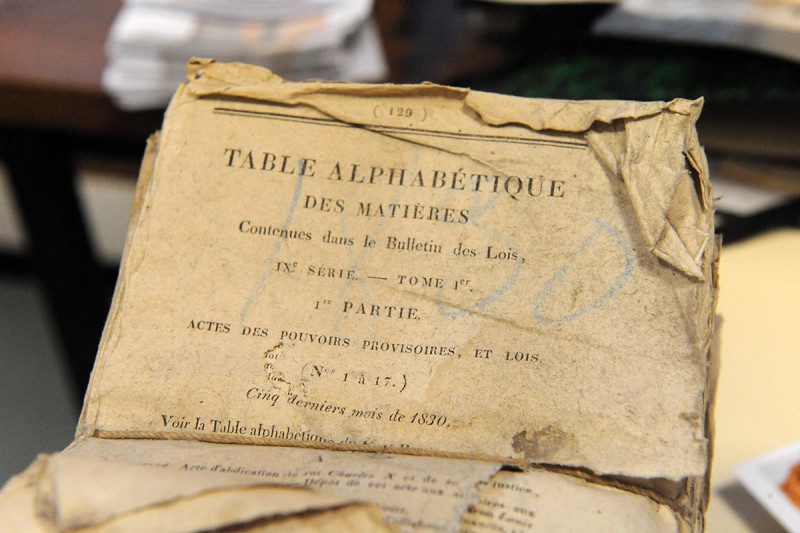 ( 129 )
TABLE ALPHABÉTIQUE
DES MATIÈRES
Contenues dans le Bulletin des Lois,
IXᵉ SÉRIE. — TOME 1ᵉʳ.
1ʳᵉ PARTIE.
ACTES DES POUVOIRS PROVISOIRES, ET LOIS
(Nᵒˢ 1 à 17.)
Cinq derniers mois de 1830.
Voir la Table alphabétique
Acte d'abdication de roi Charles X et de
justice,
Dépôt de cet acte aux